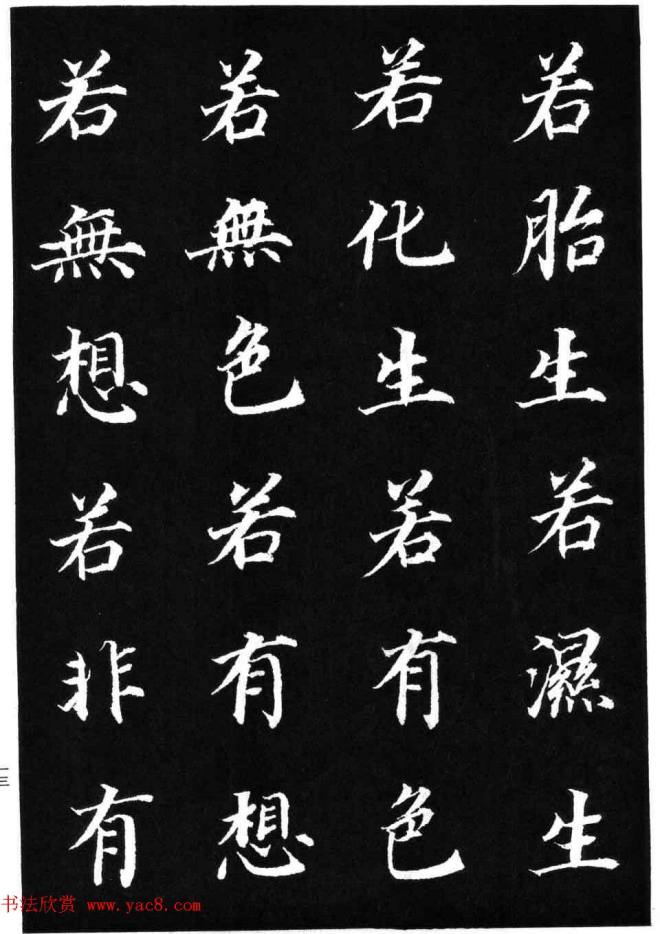 若胎生若濕生
若化生若有色
若無色若有想
若無想若非有
三
书法欣赏 www.yac8.com